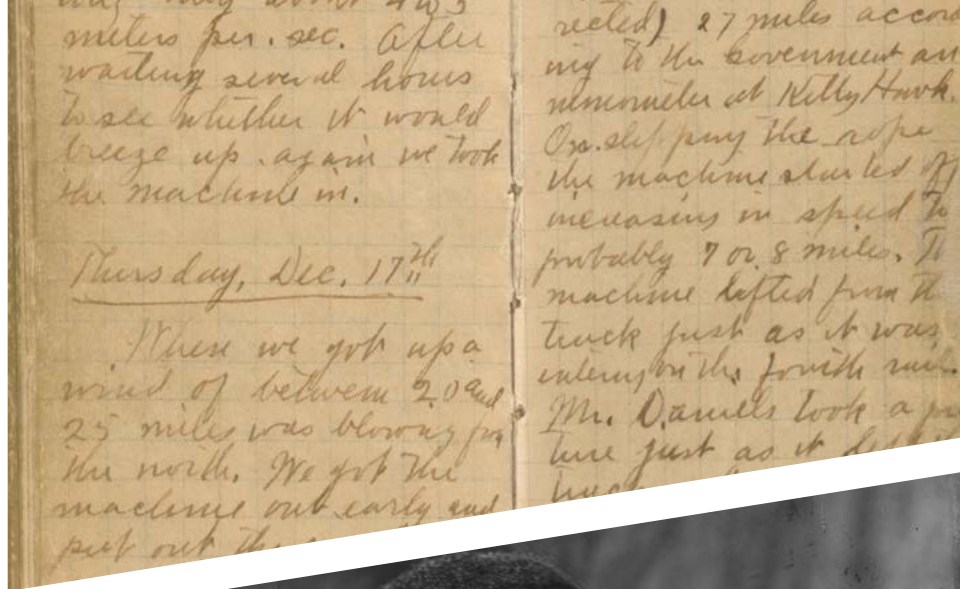 meters per. sec. After
waiting several hours
to see whether it would
breeze up again we took
the machine in.
Thursday, Dec. 17th
When we got up a
wind of between 20 and
25 miles was blowing from
the north. We got the
machine out early and
put out the
rected) 27 miles accord
ing to the Government an
nemometer at Kitty Hawk.
On slipping the rope
the machine started
increasing in speed to
probably 7 or 8 miles.
machine lifted from
truck just as it was
entering on the fourth rail.
Mr. Daniels took a
ture just as it